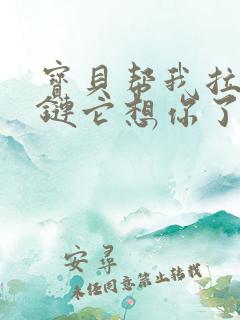 寶貝帮我拉
鏈它想你了
安尋
未经同意禁止转载